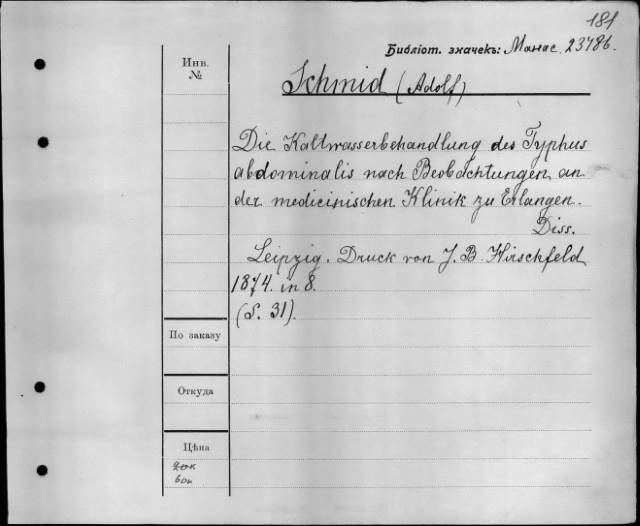 181
Библіот. значекъ: Манас. 23786.
Инв.
№
Schmid (Adolf)
Die Kaltwasserbehandlung des Typhus
abdominalis nach Beobachtungen an
der medicinischen Klinik zu Erlangen.
Diss.
Leipzig. Druck von J. B. Hirschfeld
1874. in 8.
(S. 31).
По заказу
Откуда
Цѣна